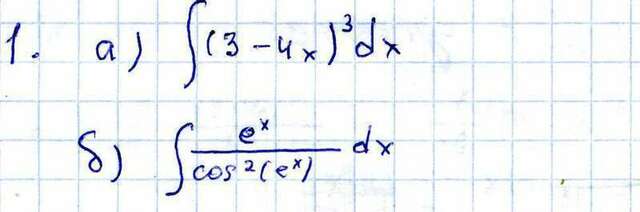 1. а) ∫(3-4x)³dx
б) ∫ e^x / cos²(e^x) dx